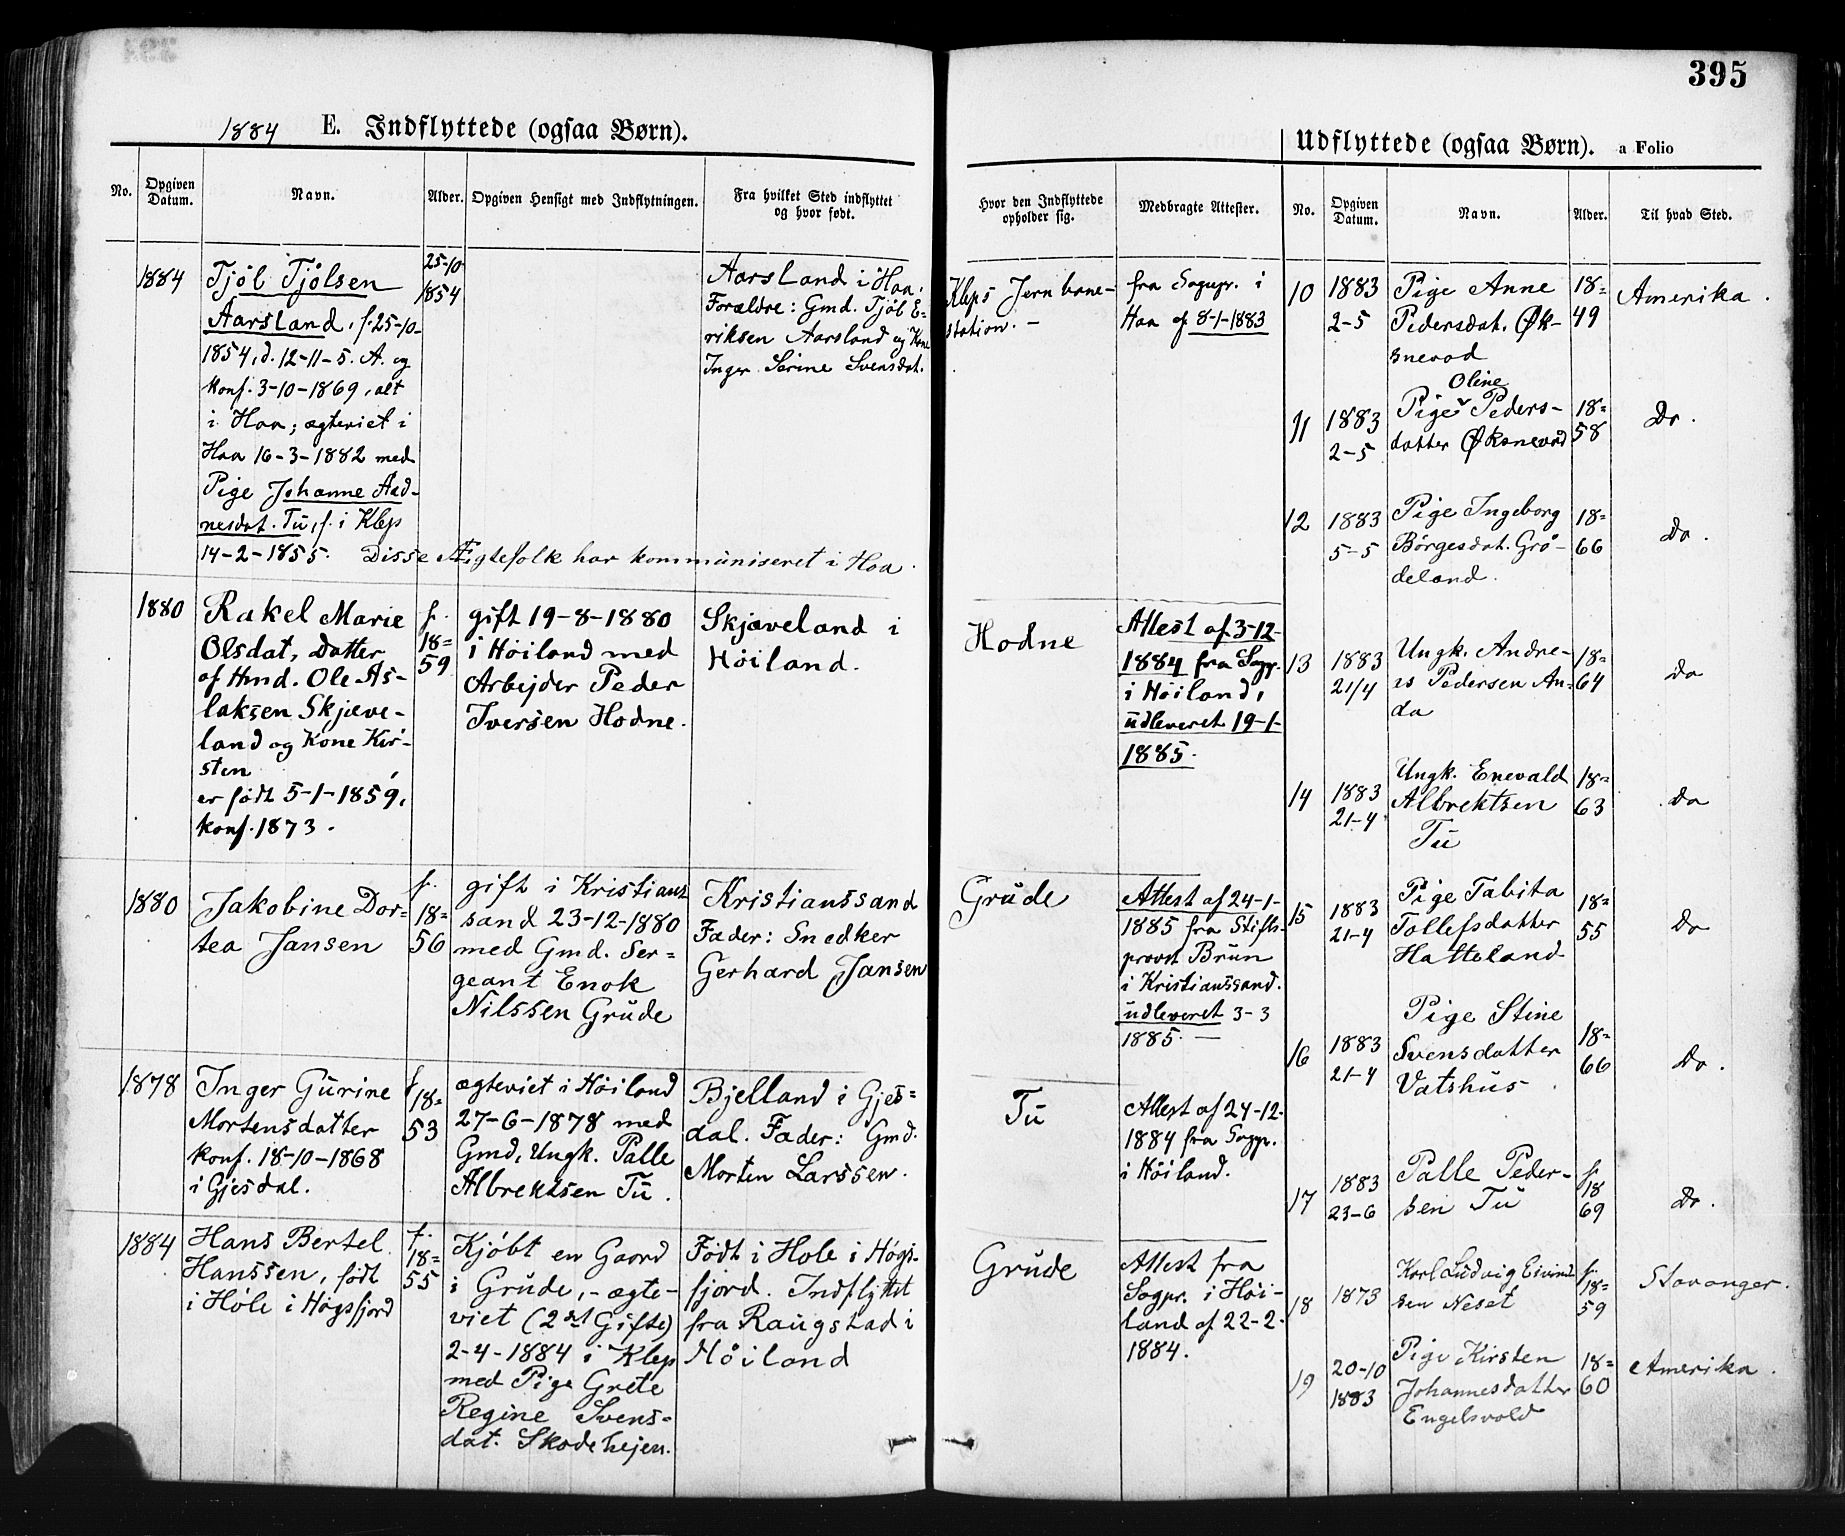 395
1884 E. Indflyttede (ogsaa Børn).
Udflyttede (ogsaa Børn). a Folio
No.
Opgiven
Datum.
Navn.
Alder.
Opgiven Hensigt med Indflytningen.
Fra hvilket Sted indflyttet
og hvor født.
Hvor den Indflyttede
opholder sig.
Medbragte Attester.
No.
Opgiven
Datum.
Navn.
Alder.
Til hvad Sted.
1884
Tjøl Tjølsen
Aarsland, f. 25-10-
1854, d. 12-11-5. A. og
konf. 3-10-1869, alt
i Haa; ægteviet i
Haa 16-3-1882 med
Pige Johanne Aad-
nesdat. Tu, f. i Klep
14-2-1855. Disse Ægtefolk har kommuniseret i Haa.
25-10
1854
Aarsland i Haa.
Forældre: Gmd. Tjøl E-
riksen Aarsland og Kone
Inger Serine Svensdat.
Kleps Jernbane-
station. -
fra Sogepr. i
Haa af 8-1-1883
1880
Rakel Marie
Olsdat, Datter
af Hmd. Ole As-
laksen Skjæve-
land og Kone Kir-
sten
er født 5-1-1859,
konf. 1873.
f.
18=
59
gift 19-8-1880
i Høiland med
Arbejder Peder
Iversen Hodne.
Skjæveland i
Høiland.
Hodne
Attest af 3-12-
1884 fra Sogpr.
i Høiland,
udleveret 19-1-
1885.
1880
Jakobine Dor-
tea Jansen
f.
18=
56
gift i Kristians
sand 23-12-1880
med Gmd. Ser=
geant Enok
Nilssen Grude
Kristianssand
Fader: Snedker
Gerhard Jansen
Grude
Attest af 24-1-
1885 fra Stifts-
provst Brun
i Kristianssand.
udleveret 3-3
1885. -
1878
Inger Gurine
Mortensdatter
konf. 18-10-1868
i Gjesdal.
f
18=
53
ægteviet i Høiland
27-6-1878 med
Gmd, Ungk. Palle
Albrektsen Tu.
Bjelland i Gjes=
dal. Fader: Gmd.
Morten Larssen.
Tu
Attest af 24-12-
1884 fra Sogpr.
i Høiland.
1884
Hans Bertel
Hanssen, født
i Høle i Høgsfjord
f.
18=
55
Kjøbt en Gaard
i Grude, - ægte-
viet (2det Gifte)
2-4-1884 i Klep
med Pige Grete
Regine Svens=
dat. Skadehejen.
Født i Hole i Høgs-
fjord. Indflyttet
fra Raugstad i
Høiland
Grude
Attest fra
Sogpr. i Høi-
land af 22-2-
1884.
10
1883
2-5
Pige Anne
Pedersdat. Øk-
snevad
18=
49
Amerika.
11
1883
2-5
Oline
Pige Peders-
datter Øksnevad
18=
58
Do.
12
1883
5-5
Pige Ingeborg
Børgesdat. Grø-
deland.
18=
66
Do.
13
1883
21/4
Ungk. Andre-
es Pedersen An-
da
18=
64
Do
14
1883
21-4
Ungk. Enevald
Albrektsen
Tu
18=
63
Do
15
1883
21-4
Pige Tabita
Tollefsdatter
Hatteland
18=
55
Do
16
1883
21-4
Pige Stine
Svensdatter
Vatshus.
18=
66
Do.
17
1883
23-6
Palle Peder-
sen Tu
f.
18
69
Do.
18
1873
Karl Ludvig Eivind
sen Neset
f.
18=
59
Stavanger.
19
20-10
1883
Pige Kirsten
Johannesdatter
Engelsvold
18=
60
Amerika.